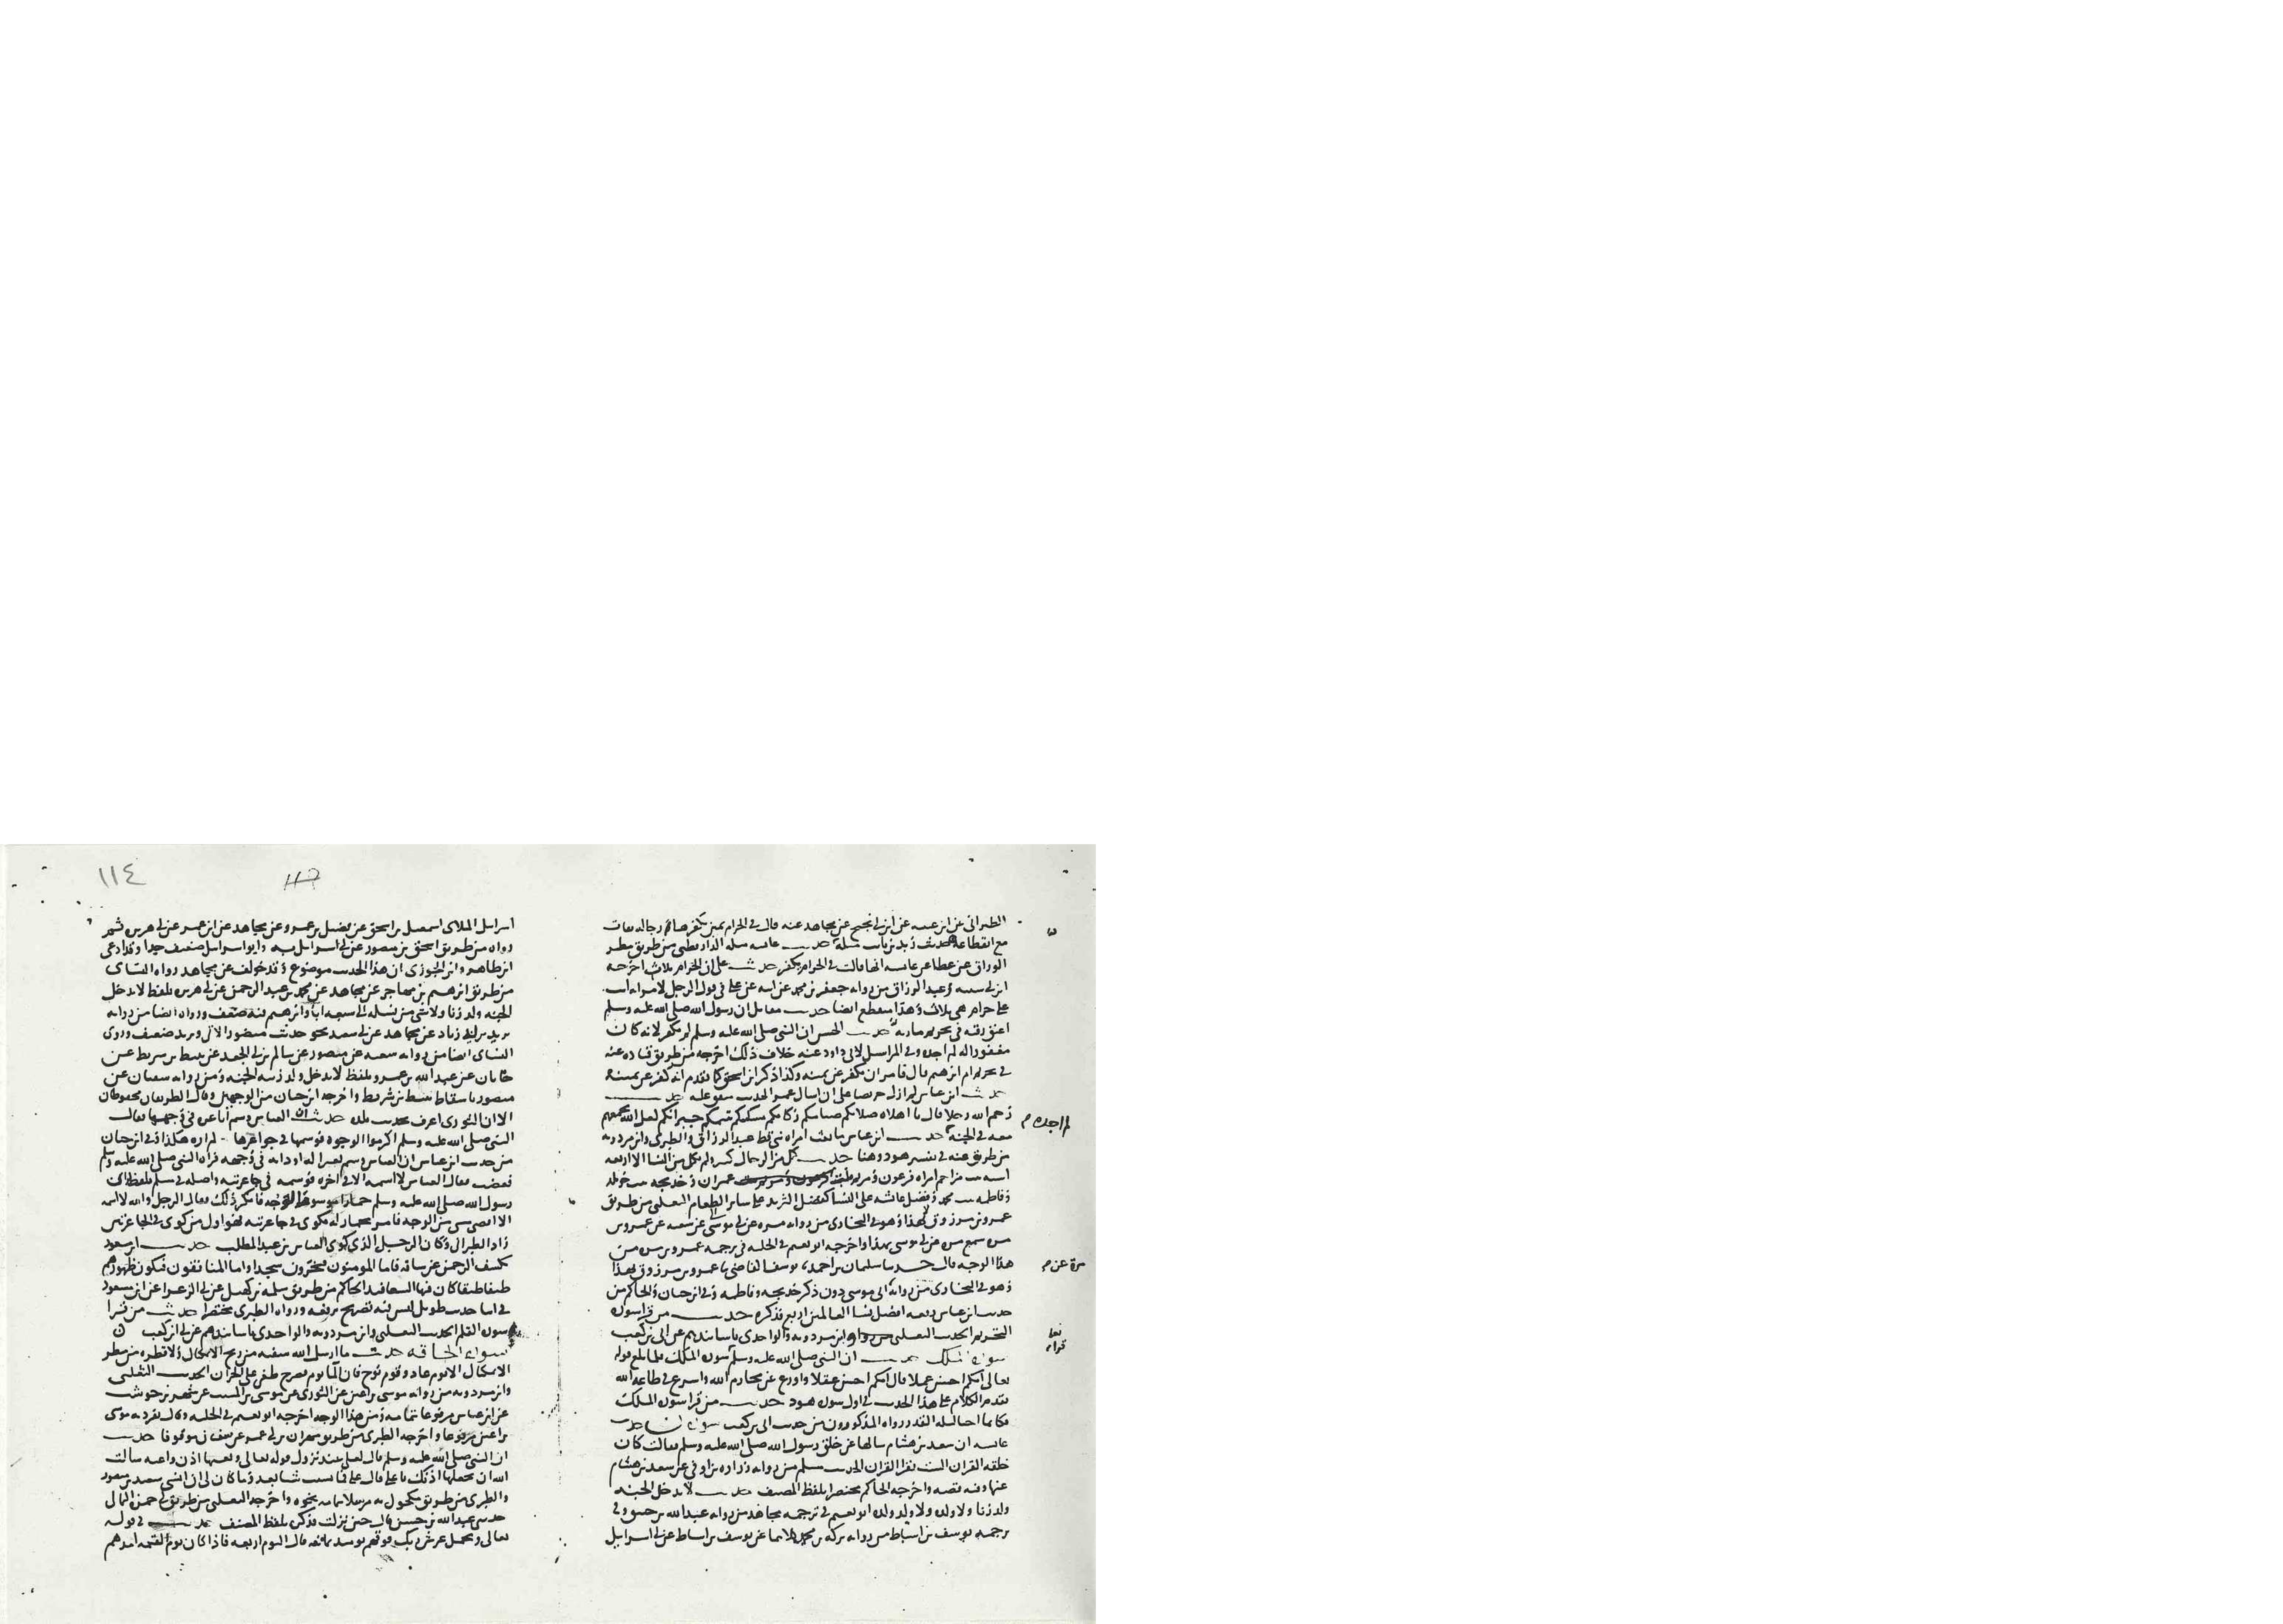 الطبراني من
عن مجاهد عنه قال في الحرام يمين يكفرها
مع انقطاعه حديث زيد بن ثابت مثله حديث عائشة مثله الدارقطني من طريق مطر
الوراق عن عطا عن عائشة انها قالت في الحرام يكفر حديث علي ان الحرام ثلاث اخرجه
ابن ابي شيبة وعبد الرزاق من رواية جعفر بن محمد عن ابيه عن علي في قول الرجل لامراته انت
علي حرام هي ثلاث وهذا منقطع ايضا حديث مقاتل ان رسول الله صلى الله عليه وسلم
اعتق رقبة في تحريم مارية حديث الحسن ان النبي صلى الله عليه وسلم لم يكفر لانه كان
مغفورا له لم اجده وفي المراسيل لابي داود عنه خلاف ذلك اخرجه من طريق قتادة عنه
في تحريم ام ابرهيم قال فامر ان يكفر عن يمينه وكذا ذكر ابن اسحق كما تقدم انه كفر عن يمينه
حديث ابن عباس لم ازل حريصا على ان اسال عمر الحديث متفق عليه حديث
رحم الله رجلا قال يا اهلاه صلاتكم صيامكم زكاتكم مسكينكم يتيمكم جيرانكم لعل الله يجمعهم
معه في الجنة حديث ابن عباس ما بغت امراة نبي قط عبد الرزاق والطبري وابن مردويه
من طريق عنه في تفسير هود وهنا حديث كمل من الرجال كثير ولم يكمل من النسا الا اربعة
اسية بنت مزاحم امراة فرعون ومريم بنت عمران وخديجة بنت خويلد
وفاطمة بنت محمد وفضل عائشة على النسا كفضل الثريد على ساير الطعام الثعلبي من طريق
عمرو بن مرزوق بهذا وهو في البخاري من رواية مرة عن ابي موسى عن شعبة عن عمرو بن
مرة سمع مرة عن ابي موسى بهذا واخرجه ابو نعيم في الحلية في ترجمة عمرو بن مرة من
هذا الوجه قال حدثنا سليمان بن احمد يوسف القاضي عمرو بن مرزوق بهذا
وهو في البخاري من رواية ابي موسى دون ذكر خديجة وفاطمة وفي ابن حبان والحاكم من
حديث ابن عباس رفعه افضل نسا العالمين اربع فذكره حديث من قرا سورة
التحريم الحديث الثعلبي وابن مردويه والواحدي باسانيدهم عن ابي بن كعب
سورة الملك حديث ان النبي صلى الله عليه وسلم سورة الملك فلما بلغ قوله
تعالى ايكم احسن عملا قال ايكم احسن عقلا واورع عن محارم الله واسرع في طاعة الله
تقدم الكلام على هذا الحديث في اول سورة هود حديث من قرا سورة الملك
فكانما احيا ليلة القدر رواه المذكورون من حديث ابي بن كعب سورة ن حديث
عائشة ان سعد بن هشام سالها عن خلق رسول الله صلى الله عليه وسلم فقالت كان
خلقه القران الست تقرا القران الحديث مسلم من رواية زرارة بن اوفى عن سعد بن هشام
عنها وفيه قصة واخرجه الحاكم مختصرا بلفظ المصنف حديث لا يدخل الجنة
ولد زنا ولا ولده ولا ولد ولده ابو نعيم في ترجمة مجاهد من رواية عبد الله بن وفي
ترجمة يوسف بن اسباط من رواية بركة بن محمد عن يوسف بن اسباط عن ابي اسرائيل
لم اجده
مرة عن
قراته
١١٤
اسرائيل الملائي اسمعيل بن اسحق عن فضيل بن عمرو عن مجاهد عن ابن عمر عن ابي هريرة ثم
رواه من طريق اسحق بن منصور عن ابي اسرائيل به وابو اسرائيل ضعيف جدا وقد ادعى
ابن طاهر وابن الجوزي ان هذا الحديث موضوع وقد خولف عن مجاهد رواه النسائي
من طريق ابرهيم بن مهاجر عن مجاهد عن محمد بن عبد الرحمن عن ابي هريرة بلفظ لا يدخل
الجنة ولد زنا ولا شي من نسله الى سبعة ابا وابرهيم فيه ضعف ورواه ايضا من رواية
يزيد بن ابي زياد عن مجاهد عن ابي سعيد نحو حديث منصور الاتي ويزيد ضعيف وروى
النسائي ايضا من رواية شعبة عن منصور عن سالم بن ابي الجعد عن نبيط بن شريط عن
جابان عن عبد الله بن عمرو بلفظ لا يدخل ولد زنية الجنة ومن رواية سفيان عن
منصور باسقاط نبيط بن شريط واخرجه ابن حبان من الوجهين وقال الطريقان محفوظان
الا ان الثوري اعرف بحديث بلده حديث ان العباس وسم اباعره في وجهها فقال
النبي صلى الله عليه وسلم اكرموا الوجوه فوسمها في جواعرها لم اره هكذا وفي ابن حبان
من حديث ابن عباس ان العباس وسم بعيرا له او دابة في وجهه فراه النبي صلى الله عليه وسلم
فغضب فقال العباس لا اسمه الا في اخره فوسمه في جاعرتيه واصله في مسلم بلفظ راى
رسول الله صلى الله عليه وسلم حمارا موسوم الوجه فانكر ذلك فقال الرجل والله لا اسمه
الا اقصى شي من الوجه فامر بحمار له فكوى في جاعرتيه فهو اول من كوى في الجاعرتين
زاد الطبراني وكان الرجل الذي كوى العباس بن عبد المطلب حديث ابن مسعود
يكشف الرحمن عن ساقه فاما المومنون فيخرون سجدا واما المنافقون فتكون ظهورهم
طبقا طبقا كان فيها السفافيد الحاكم من طريق سلمة بن كهيل عن ابي الزعرا عن ابن مسعود
في اثنا حديث طويل ليس فيه تصريح برفعه ورواه الطبري مختصرا حديث من قرا
سورة القلم الحديث الثعلبي وابن مردويه والواحدي باسانيدهم عن ابي بن كعب
سورة الحاقة حديث ما ارسل الله سفينة من ريح الا بمكيال ولا قطرة من مطر
الا بمكيال الا يوم عاد وقوم نوح فان الما يوم نوح طغى على الخزان الحديث الثعلبي
وابن مردويه من رواية موسى بن اعين عن الثوري عن موسى بن المسيب عن شهر بن حوشب
عن ابن عباس مرفوعا بتمامه ومن هذا الوجه اخرجه ابو نعيم في الحلية وقال تفرد به موسى
بن اعين مرفوعا واخرجه الطبري من طريق مهران بن ابي عمر عن سفيان موقوفا حديث
ان النبي صلى الله عليه وسلم قال لعلي عند نزول قوله تعالى وتعيها اذن واعية سالت
الله ان يجعلها اذنك يا علي قال علي فما نسيت شيا بعد وما كان لي ان انسى سعيد بن منصور
والطبري من طريق مكحول به مرسلا بتمامه نحوه واخرجه الثعلبي من طريق ابي حمزة الثمالي
حدثني عبد الله بن حسن قال حين نزلت فذكره بلفظ المصنف حديث في قوله
تعالى ويحمل عرش ربك فوقهم يومئذ ثمانية قال اليوم اربعة فاذا كان يوم القيمة ايدهم